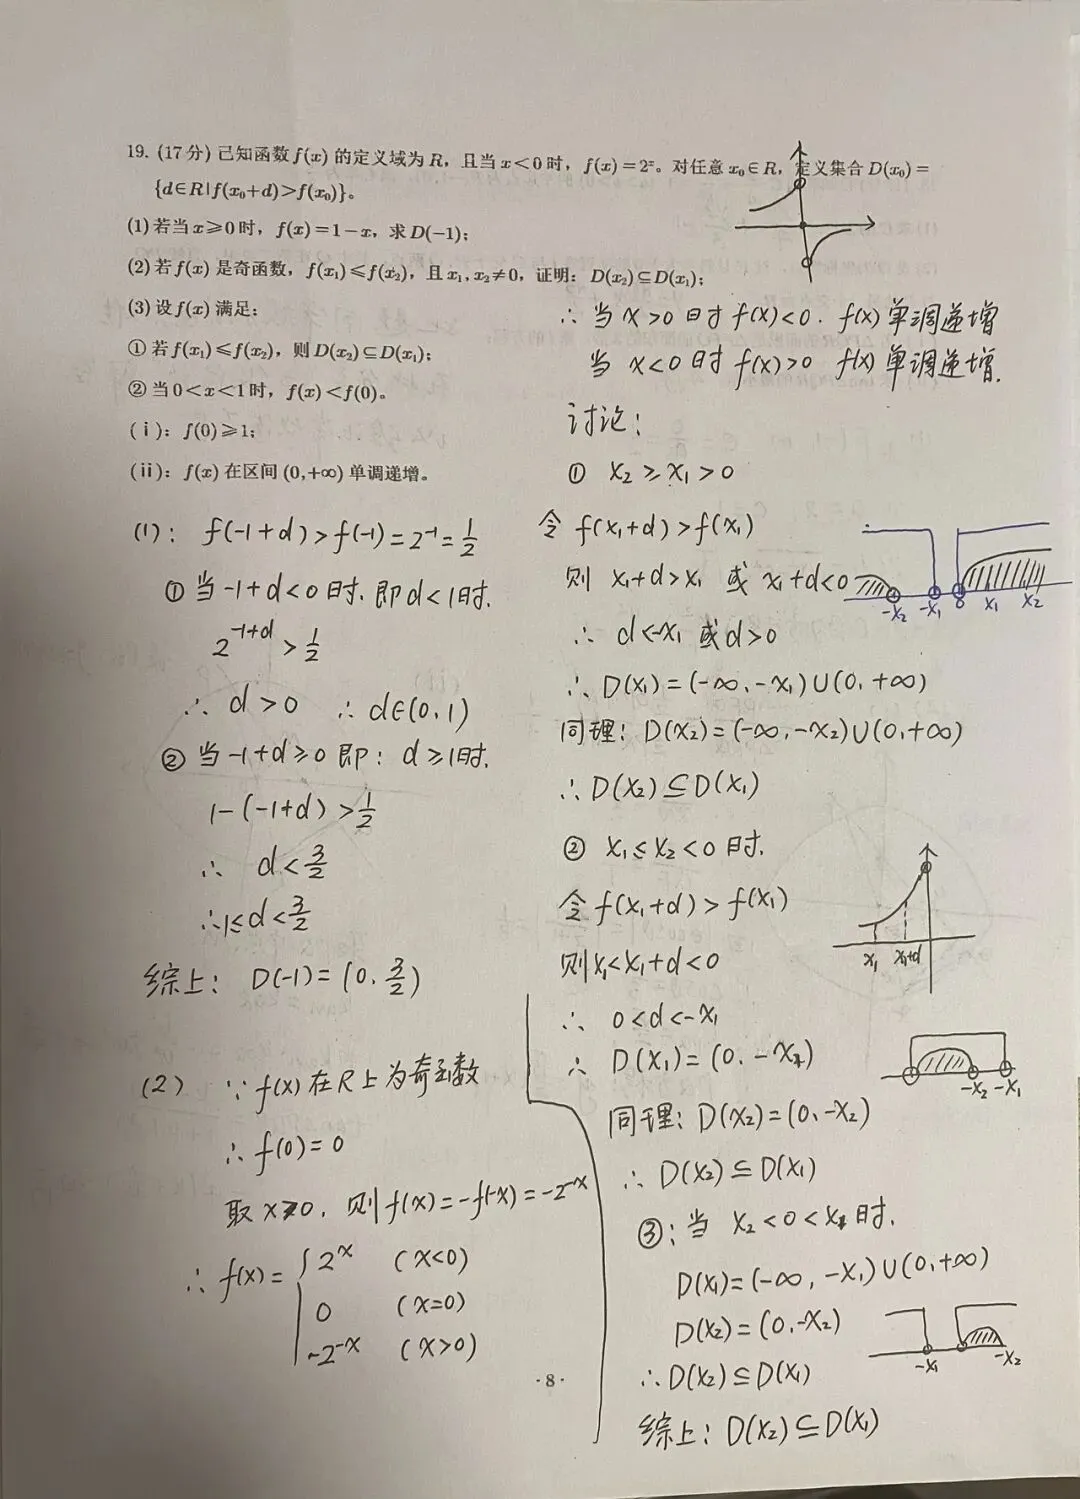 19. (17分) 已知函数 f(x) 的定义域为 R，且当 x<0 时，f(x)=2ˣ。对任意 x₀∈R，定义集合 D(x₀)=
{d∈R|f(x₀+d)>f(x₀)}。
(1) 若当 x≥0 时，f(x)=1-x，求 D(-1)；
(2) 若 f(x) 是奇函数，f(x₁)≤f(x₂)，且 x₁,x₂≠0，证明：D(x₂)⊆D(x₁)；
(3) 设 f(x) 满足：
① 若 f(x₁)≤f(x₂)，则 D(x₂)⊆D(x₁)；
② 当 0<x<1 时，f(x)<f(0)。
(ⅰ)：f(0)≥1；
(ⅱ)：f(x) 在区间 (0,+∞) 单调递增。
(1)： f(-1+d)>f(-1)=2⁻¹=1/2
① 当 -1+d<0 时. 即 d<1 时.
2^(-1+d) > 1/2
∴ d>0 ∴ d∈(0, 1)
② 当 -1+d≥0 即：d≥1时.
1-(-1+d) > 1/2
∴ d<3/2
∴ 1≤d<3/2
综上： D(-1)=(0, 3/2)
(2) ∵ f(x) 在 R 上为奇函数
∴ f(0)=0
取 x>0, 则 f(x)=-f(-x)=-2^(-x)
∴ f(x)={ 2^x (x<0)
0 (x=0)
-2^(-x) (x>0)
∴ 当 x>0 时 f(x)<0. f(x) 单调递增
当 x<0 时 f(x)>0 f(x) 单调递增.
讨论：
① x₂≥x₁>0
令 f(x₁+d)>f(x₁)
则 x₁+d>x₁ 或 x₁+d<0
-x₂ -x₁ 0 x₁ x₂
∴ d<-x₁ 或 d>0
∴ D(x₁)=(-∞,-x₁)∪(0,+∞)
同理：D(x₂)=(-∞,-x₂)∪(0,+∞)
∴ D(x₂)⊆D(x₁)
② x₁≤x₂<0 时.
令 f(x₁+d)>f(x₁)
则 x₁<x₁+d<0
x₁ x₁+d
∴ 0<d<-x₁
∴ D(x₁)=(0, -x₁)
-x₂ -x₁
同理：D(x₂)=(0,-x₂)
∴ D(x₂)⊆D(x₁)
③：当 x₂<0<x₁ 时.
D(x₁)=(-∞, -x₁)∪(0,+∞)
D(x₂)=(0,-x₂)
-x₁ -x₂
∴ D(x₂)⊆D(x₁)
综上：D(x₂)⊆D(x₁)
·8·